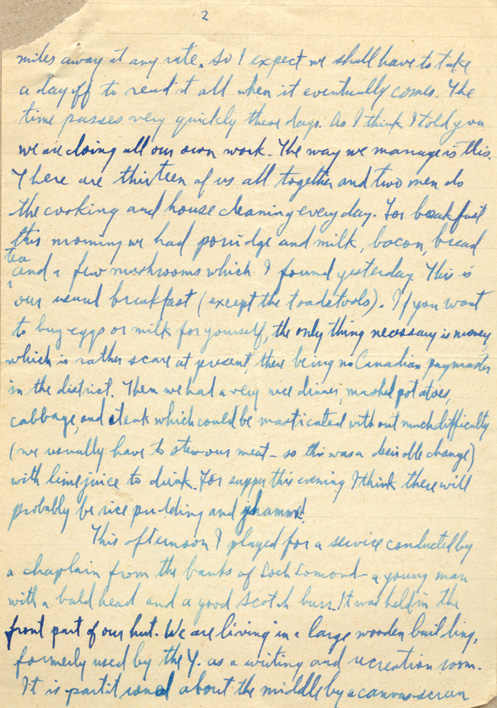 2
miles away at any rate. So I expect we shall have to take
a day off to read it all when it eventually comes. The
time passes very quickly these days. As I think I told you
we are doing all our own work. The way we manage is this.
There are thirteen of us all together and two men do
the cooking and house cleaning every day. For breakfast
this morning we had porridge and milk, bacon, bread
tea
and a few mushrooms which I found yesterday. This is
our usual breakfast (except the toadstools). If you want
to buy eggs or milk for yourself, the only thing necessary is money,
which is rather scarce at present, there being no Canadian paymaster
in the district. Then we had a very nice dinner, mashed potatoes,
cabbage, and steak which could be masticated without much difficulty
(we usually have to stew our meat – so this was a desirable change)
with lime juice to drink. For supper this evening I think there will
probably be rice pudding and
This afternoon I played for a service conducted by
a chaplain from the banks of Loch Lomond – a young man
with a bald head and a good Scotch burr. It was held in the
front part of our hut. We are living in a large wooden building,
formerly used by the Y. as a writing and recreation room.
It is partitioned about the middle by a canvas screen